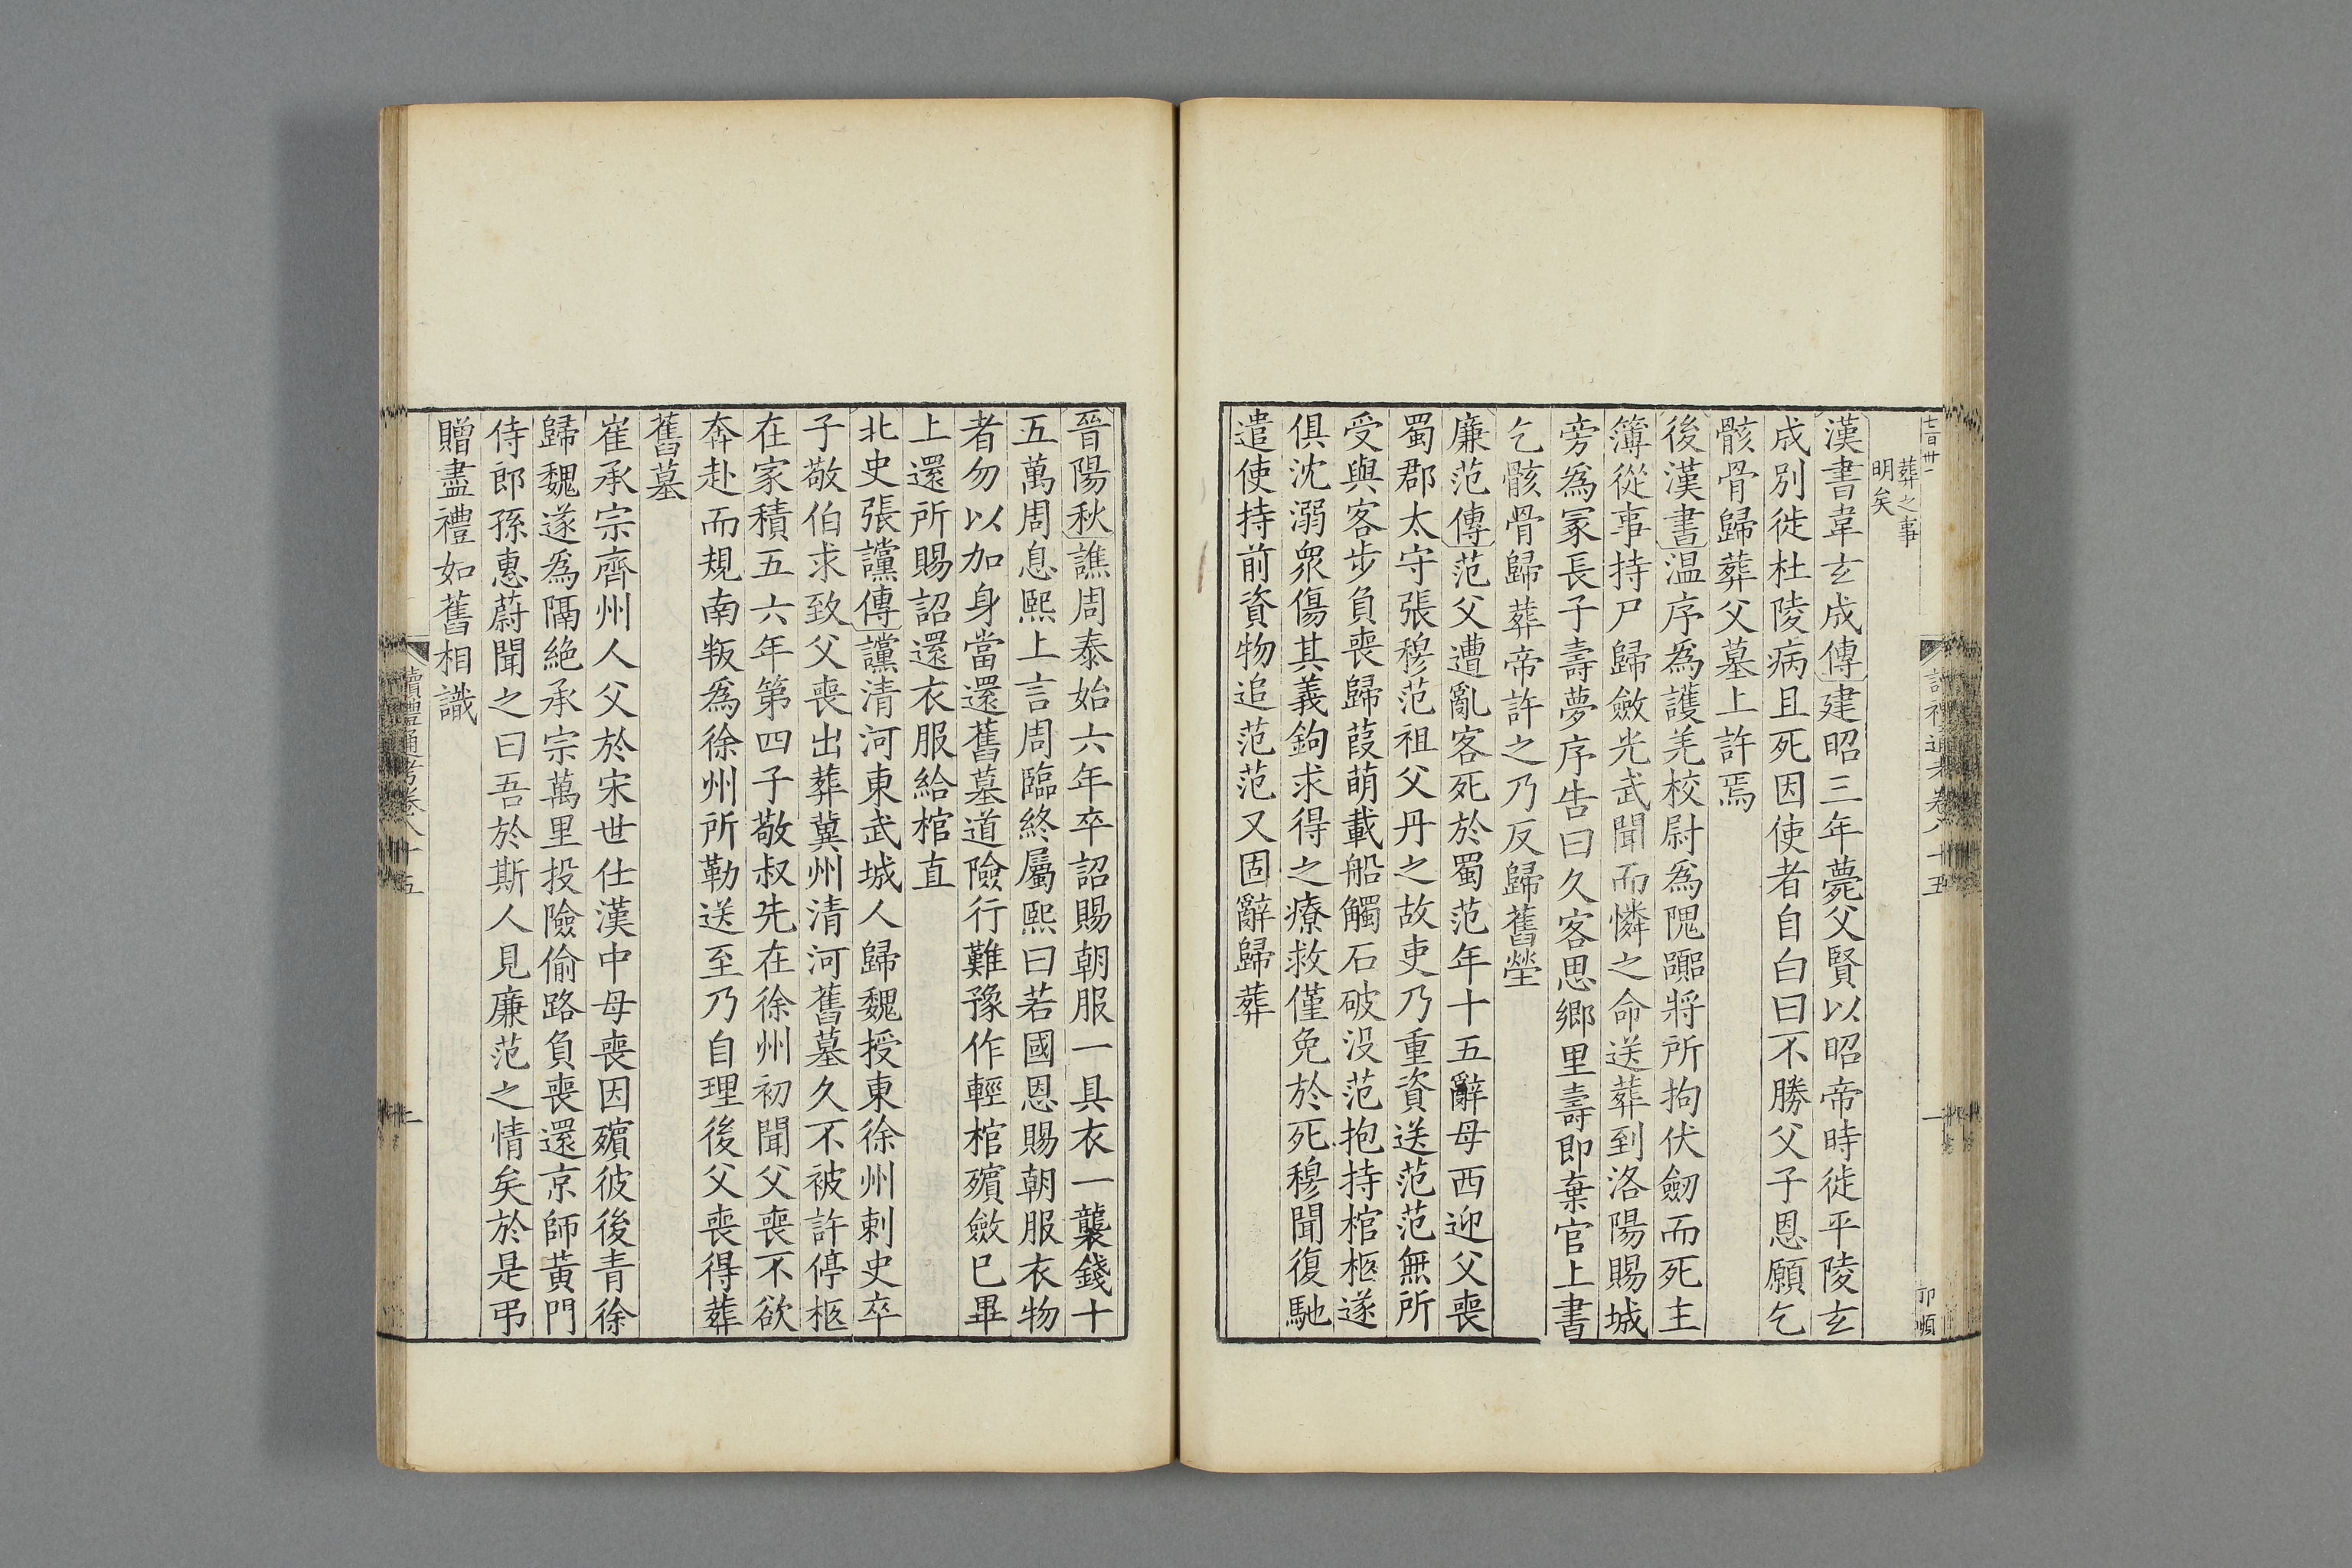 葬之事
明矣
漢書韋玄成傳建昭三年薨父賢以昭帝時徙平陵玄
成別徙杜陵病且死因使者自白曰不勝父子恩願乞
骸骨歸葬父墓上許焉
後漢書温序爲護羌校尉爲隗囂將所拘伏劒而死主
簿從事持尸歸斂光武聞而憐之命送葬到洛陽賜城
旁爲冢長子壽夢序告曰久客思鄉里壽即棄官上書
乞骸骨歸葬帝許之乃反歸舊塋
廉范傳范父遭亂客死於蜀范年十五辭母西迎父喪
蜀郡太守張穆范祖父丹之故吏乃重資送范范無所
受與客步負喪歸葭萌載船觸石破没范抱持棺柩遂
俱沈溺衆傷其義鉤求得之療救僅免於死穆聞復馳
遣使持前資物追范范又固辭歸葬
一
晉陽秋譙周泰始六年卒詔賜朝服一具衣一襲錢十
五萬周息熙上言周臨終屬熙曰若國恩賜朝服衣物
者勿以加身當還舊墓道險行難豫作輕棺殯斂已畢
上還所賜詔還衣服給棺直
北史張讜傳讜清河東武城人歸魏授東徐州刺史卒
子敬伯求致父喪出葬冀州清河舊墓久不被許停柩
在家積五六年第四子敬叔先在徐州初聞父喪不欲
奔赴而規南叛爲徐州所勒送至乃自理後父喪得葬
舊墓
崔承宗齊州人父於宋世仕漢中母喪因殯彼後青徐
歸魏遂爲隔絶承宗萬里投險偷路負喪還京師黃門
侍郎孫惠蔚聞之曰吾於斯人見廉范之情矣於是弔
贈盡禮如舊相識
讀禮通考卷八十五